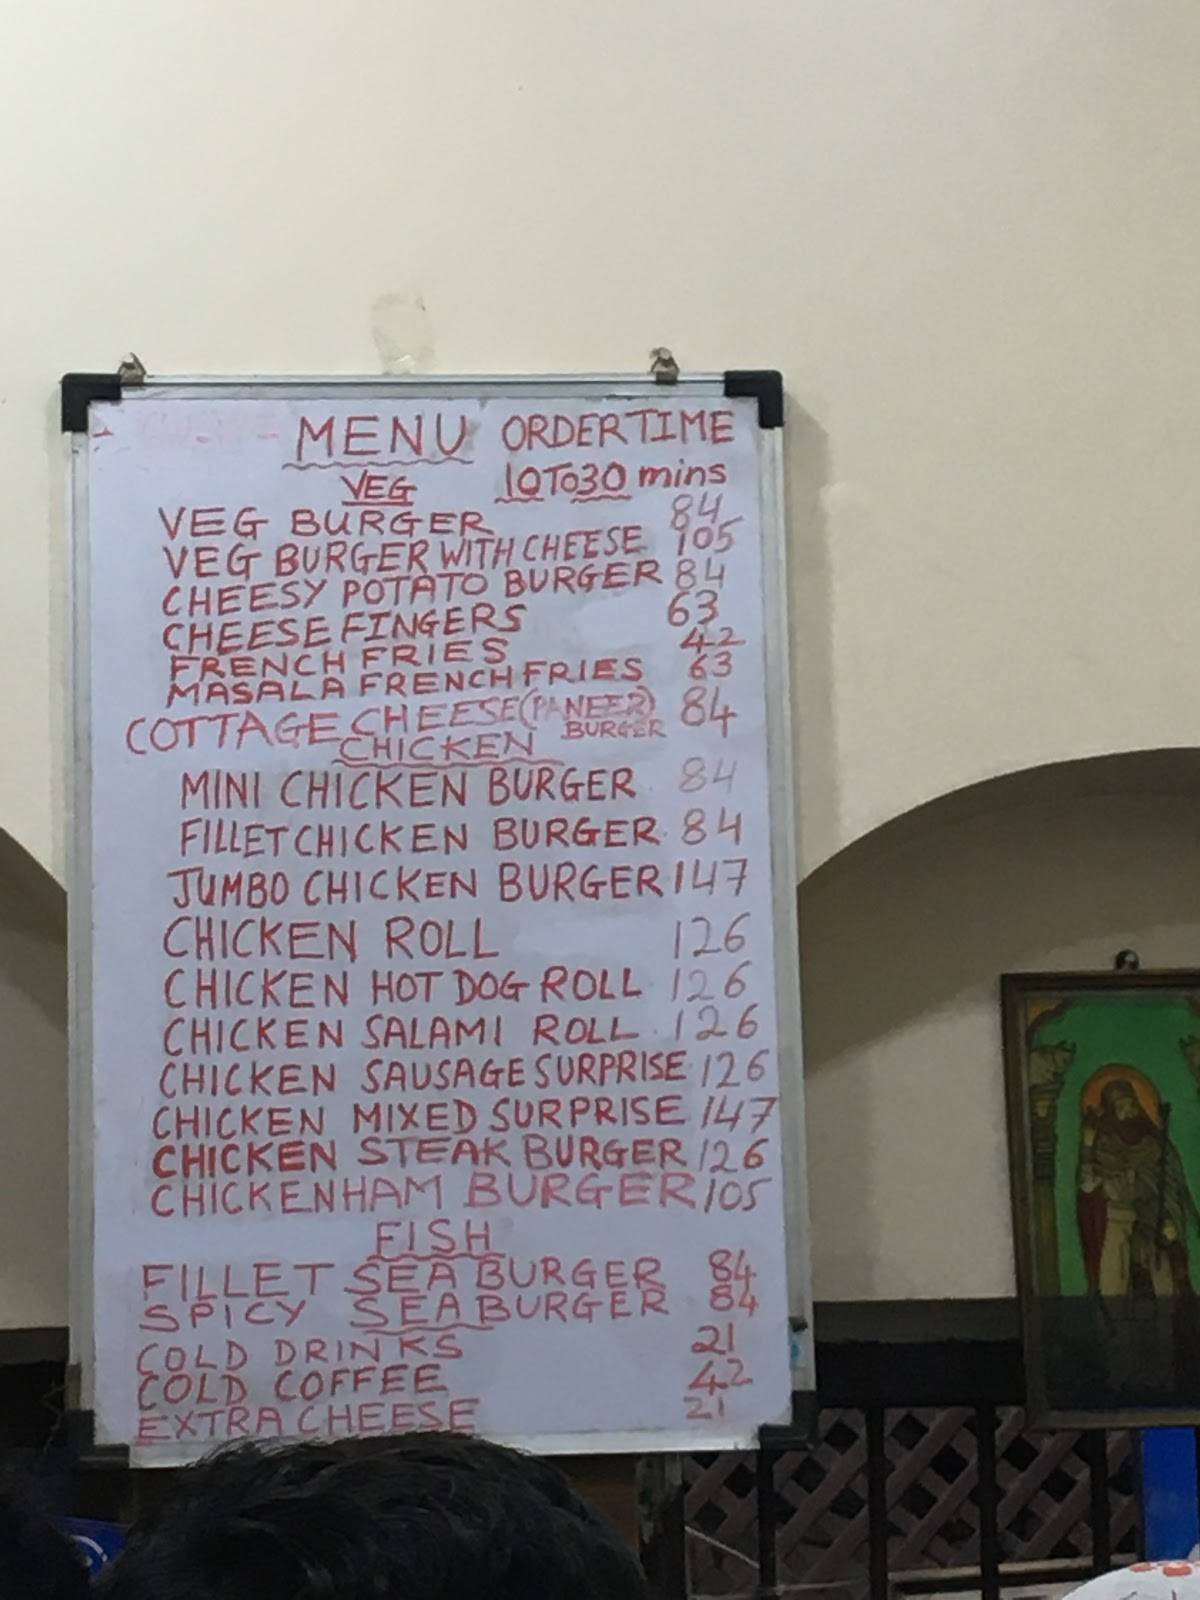 MENU ORDER TIME
VEG 10 TO 30 mins
VEG BURGER 84
VEG BURGER WITH CHEESE 105
CHEESY POTATO BURGER 84
CHEESE FINGERS 63
FRENCH FRIES 42
MASALA FRENCH FRIES 63
COTTAGE CHEESE (PANEER) BURGER 84
CHICKEN
MINI CHICKEN BURGER 84
FILLET CHICKEN BURGER 84
JUMBO CHICKEN BURGER 147
CHICKEN ROLL 126
CHICKEN HOT DOG ROLL 126
CHICKEN SALAMI ROLL 126
CHICKEN SAUSAGE SURPRISE 126
CHICKEN MIXED SURPRISE 147
CHICKEN STEAK BURGER 126
CHICKEN HAM BURGER 105
FISH
FILLET SEA BURGER 84
SPICY SEA BURGER 84
COLD DRINKS 21
COLD COFFEE 42
EXTRA CHEESE 21